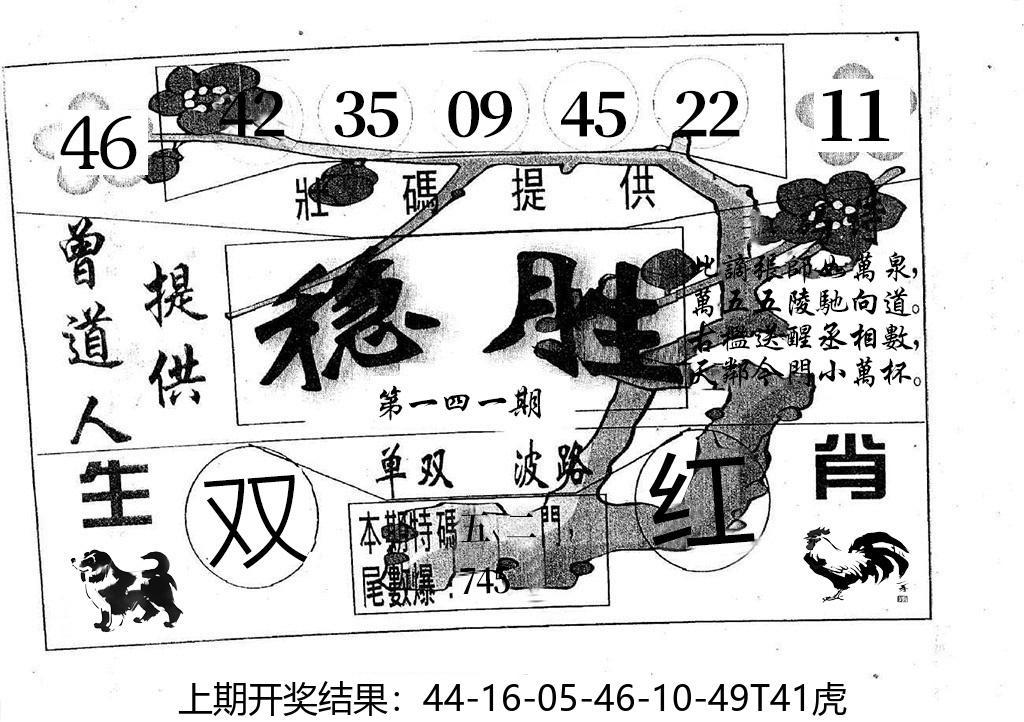 46 42 35 09 45 22 11
壯碼提供
曾道人
提供
稳胜
第一四一期
此謫張師如萬泉，
萬五五陵馳向道。
右檻送醒丞相數，
天鄰今門小萬杯。
单双 波路
生肖
双
红
本期特碼五、二門，
尾數爆：745
上期开奖结果：44-16-05-46-10-49T41虎